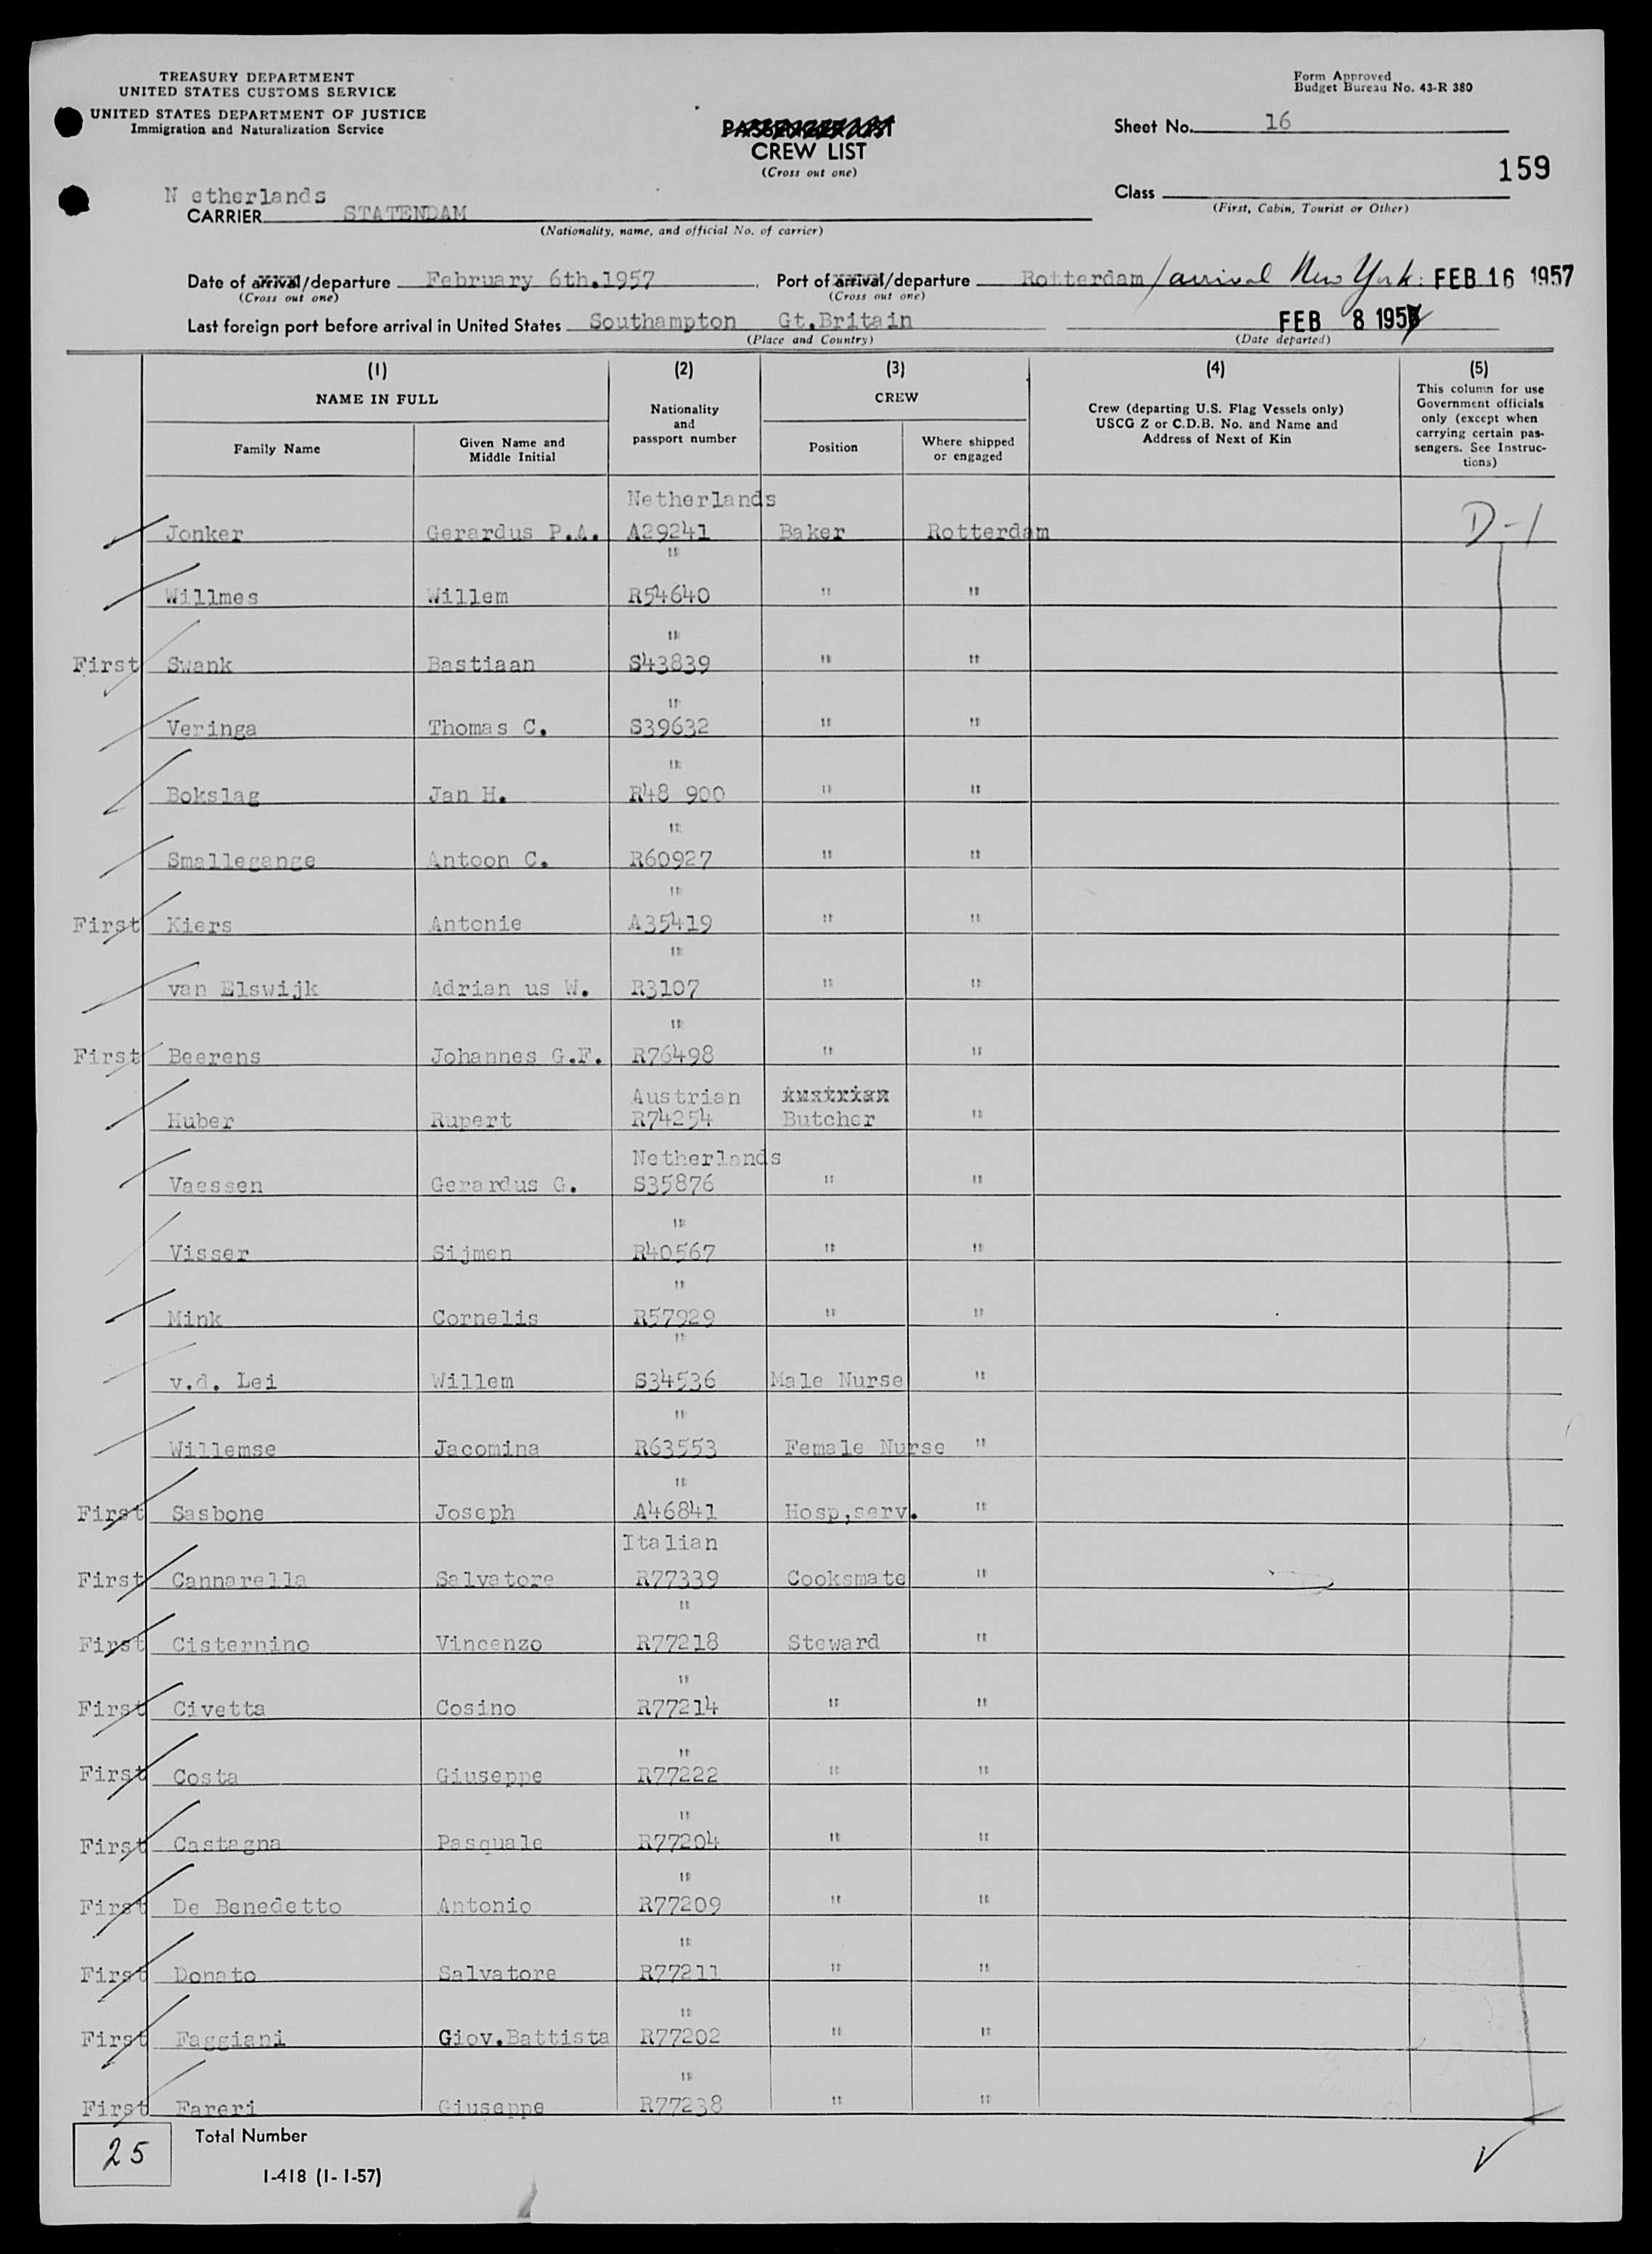 TREASURY DEPARTMENT
UNITED STATES CUSTOMS SERVICE
UNITED STATES DEPARTMENT OF JUSTICE
Immigration and Naturalization Service
Form Approved
Budget Bureau No. 43-R 380
PASSENGER LIST
CREW LIST
(Cross out one)
Sheet No. 16
159
Class
(First, Cabin, Tourist or Other)
N etherlands
CARRIER STATENDAM
(Nationality, name, and official No. of carrier)
Date of arrival/departure February 6th.1957. Port of arrival/departure Rotterdam / arrival New York: FEB 16 1957
(Cross out one) (Cross out one)
Last foreign port before arrival in United States Southampton Gt.Britain FEB 8 1957
(Place and Country) (Date departed)
(1) (2) (3) (4) (5)
NAME IN FULL
Nationality
and
passport number
CREW
Crew (departing U.S. Flag Vessels only)
USCG Z or C.D.B. No. and Name and
Address of Next of Kin
This column for use
Government officials
only (except when
carrying certain pas-
sengers. See Instruc-
tions)
Family Name
Given Name and
Middle Initial
Position
Where shipped
or engaged
Netherlands
Jonker Gerardus P.A. A29241 Baker Rotterdam D-1
"
Willmes Willem R54640 " "
"
First Swank Bastiaan S43839 " "
"
Veringa Thomas C. S39632 " "
"
Bokslag Jan H. R48 900 " "
"
Smallegange Antoon C. R60927 " "
"
First Kiers Antonie A35419 " "
"
van Elswijk Adrian us W. R3107 " "
"
First Beerens Johannes G.F. R76498 " "
Austrian Austrian
Huber Rupert R74254 Butcher "
Netherlands
Vaessen Gerardus G. S35876 " "
"
Visser Sijmen R40567 " "
"
Mink Cornelis R57929 " "
"
v.d. Lei Willem S34536 Male Nurse "
"
Willemse Jacomina R63553 Female Nurse "
"
First Sasbone Joseph A46841 Hosp,serv. "
Italian
First Cannarella Salvatore R77339 Cooksmate "
"
First Cisternino Vincenzo R77218 Steward "
"
First Civetta Cosino R77214 " "
"
First Costa Giuseppe R77222 " "
"
First Castagna Pasquale R77204 " "
"
First De Benedetto Antonio R77209 " "
"
First Donato Salvatore R77211 " "
"
First Faggiani Giov.Battista R77202 " "
"
First Fareri Giuseppe R77238 " "
25 Total Number
I-418 (1-1-57)